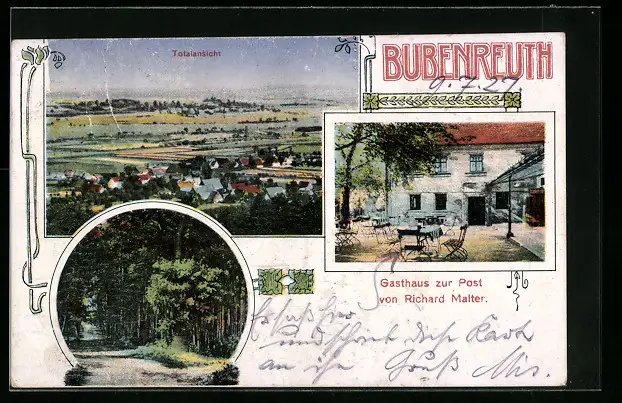 Totalansicht
BUBENREUTH
9.7.27.
Gasthaus zur Post
von Richard Malter.
und schreibt diese Karte
an ihr Gruß